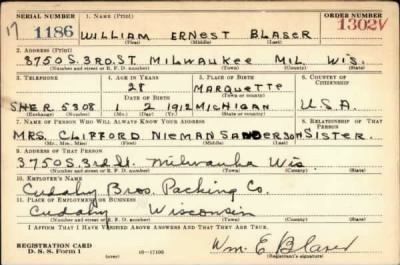 SERIAL NUMBER 1. NAME (Print) ORDER NUMBER
17 1186 WILLIAM ERNEST BLASER 1302V
(First) (Middle) (Last)
2. ADDRESS (Print)
3750 S. 3RD. ST MILWAUKEE MIL WIS.
(Number and street or R. F. D. number) (Town) (County) (State)
3. TELEPHONE 4. AGE IN YEARS 5. PLACE OF BIRTH 6. COUNTRY OF CITIZENSHIP
28 MARQUETTE
DATE OF BIRTH (Town or county)
SHER. 5308 1 2 1912 MICHIGAN U.S.A.
(Exchange) (Number) (Mo.) (Day) (Yr.) (State or country)
7. NAME OF PERSON WHO WILL ALWAYS KNOW YOUR ADDRESS 8. RELATIONSHIP OF THAT PERSON
MRS. CLIFFORD NIEMAN SANDERSON SISTER.
(Mr., Mrs., Miss) (First) (Middle) (Last)
9. ADDRESS OF THAT PERSON
3750 S. 3rd St. Milwaukee Wis.
(Number and street or R. F. D. number) (Town) (County) (State)
10. EMPLOYER'S NAME
Cudahy Bros. Packing Co.
11. PLACE OF EMPLOYMENT OR BUSINESS
Cudahy Wisconsin
(Number and street or R. F. D. number) (Town) (County) (State)
I AFFIRM THAT I HAVE VERIFIED ABOVE ANSWERS AND THAT THEY ARE TRUE.
REGISTRATION CARD
D. S. S. Form 1 (over) 16—17105 Wm. E Blaser
(Registrant's signature)